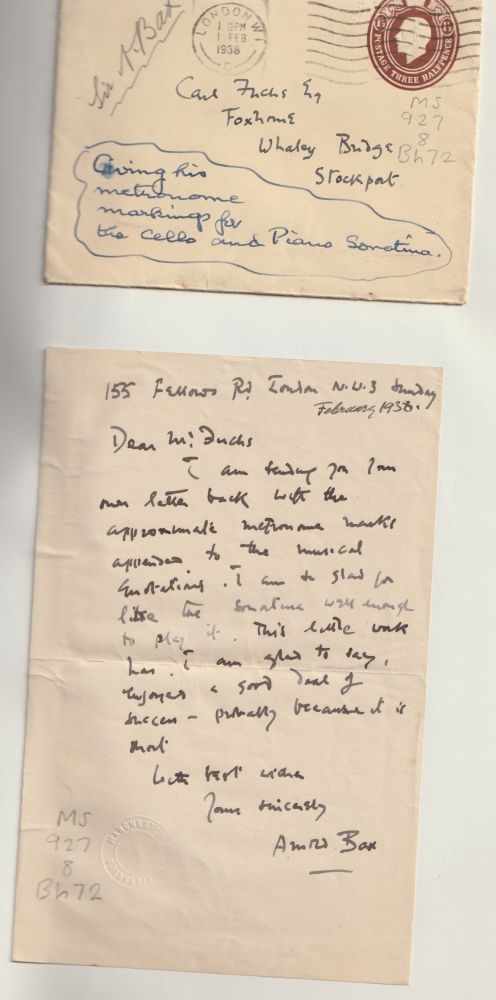 Sir A. Bax
LONDON. W.1.
1 15PM
1 FEB
1938
C
POSTAGE THREE HALFPENCE
Carl Fuchs Esq
Foxhome
Whaley Bridge
Stockport
MS
927
8
Bh72
Giving his
metronome
markings for
the Cello and Piano Sonatina.
155 Fellows Rd London N.W.3 Sunday
February 1938.
Dear Mr. Fuchs
I am sending you your
own letter back with the
approximate metronome marks
appended to the musical
quotations. I am so glad you
like the Sonatina well enough
to play it. This little work
has, I am glad to say,
enjoyed a good deal of
success - probably because it is
short
With best wishes
Yours sincerely
Arnold Bax
MS
927
8
Bh72